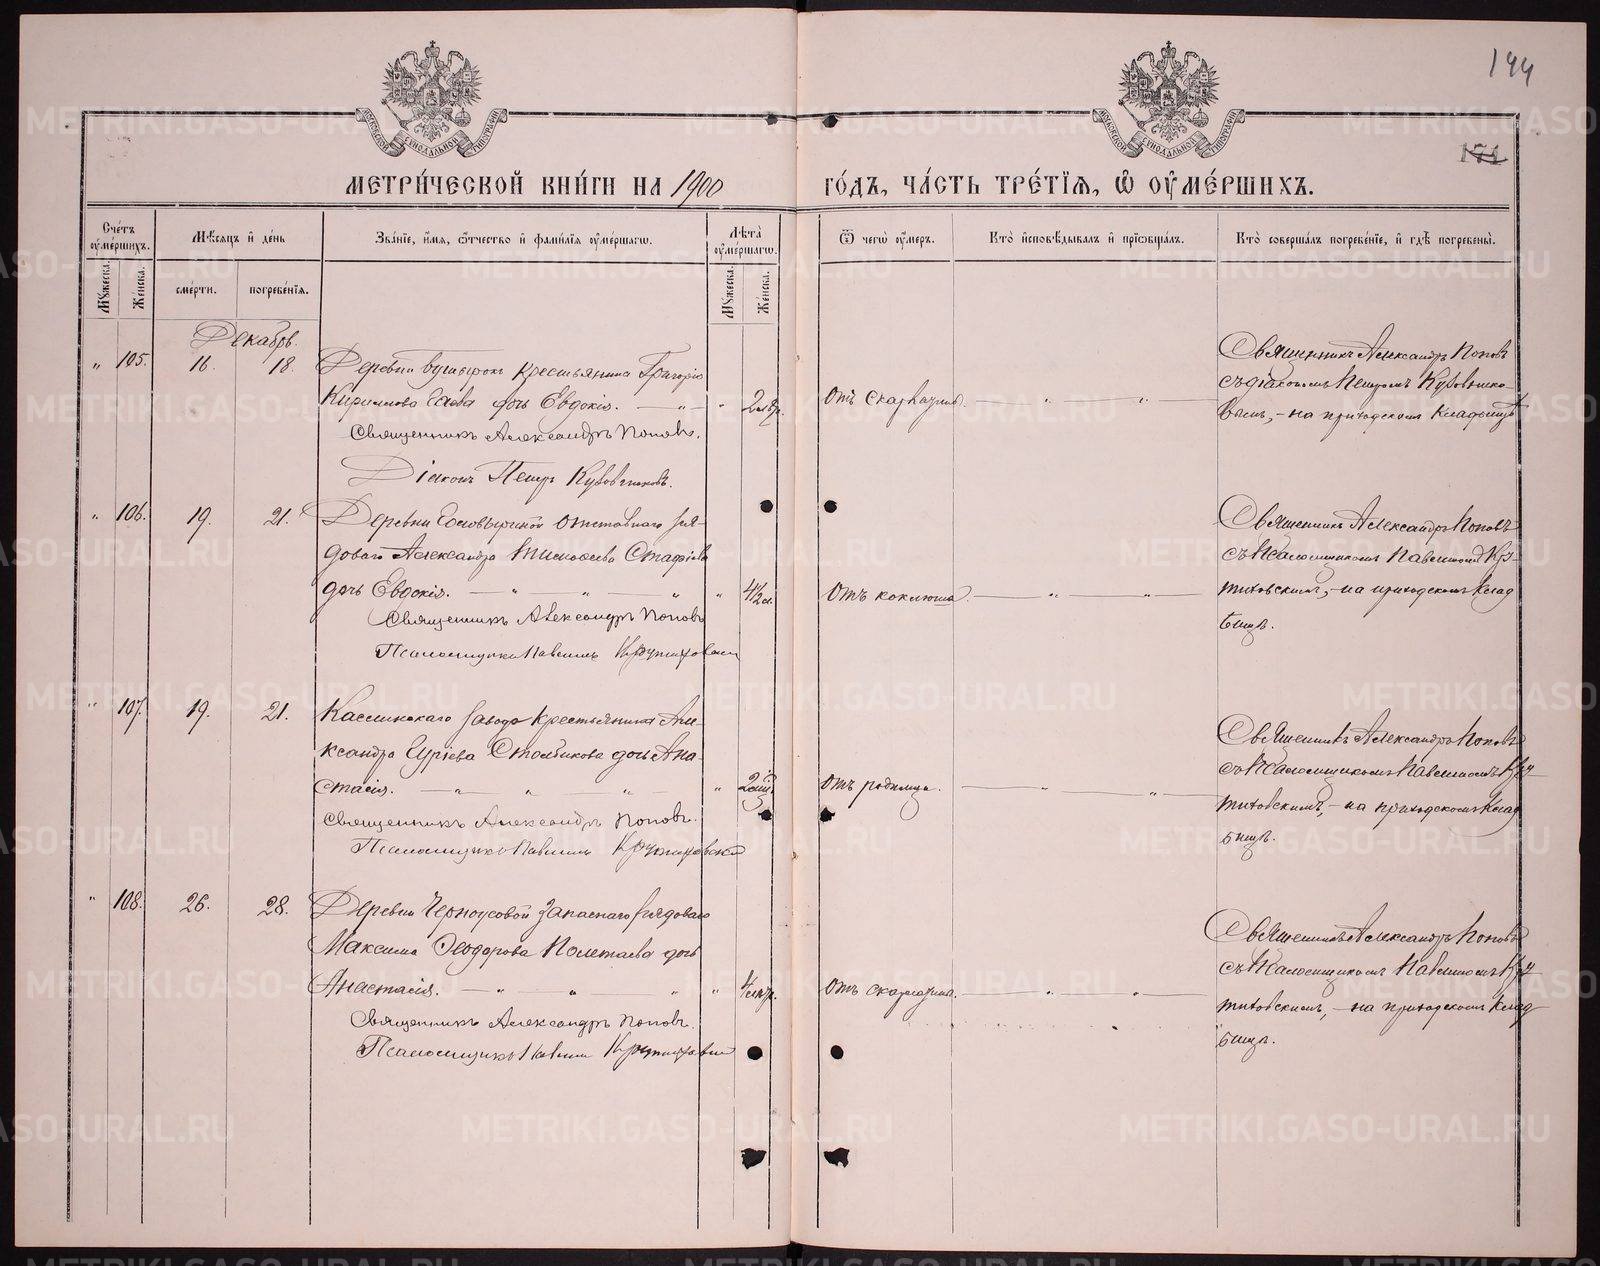 194
МЕТРИ́ЧЕСКОЙ КНИ́ГИ НА 1900
ГО́ДЪ, ЧА́СТЬ ТРЕ́ТІѦ, Ѡ҆ ОУ҆МЕ́РШИХЪ.
Сче́тъ оу҆ме́ршихъ.
Мѣ́сѧцъ и҆ де́нь
Зва́нїе, и҆́мѧ, ѻ҆́тчество и҆ фами́лїѧ оу҆ме́ршагѡ.
Лѣ́та оу҆ме́ршагѡ.
Ѿ чегѡ̀ оу҆́меръ.
Кто̀ и҆сповѣ́дывалъ и҆ прїѡбща́лъ.
Кто̀ соверша́лъ погребе́нїе, и҆ гдѣ̀ погребены̀.
Мꙋ́жеска.
Же́нска.
сме́рти.
погребе́нїѧ.
Мꙋ́жеска.
Же́нска.
Декабрь.
" 105. 16. 18. Деревни крестьянина Григорія
Кириллова дочь Евдокія. — " — "
Священникъ Александръ Поповъ.
Діаконъ Петръ Кубовчиковъ.
Отъ Скарлатины. — " — " —
Священникъ Александръ Поповъ
съ діакономъ Петромъ
— на приходскомъ Кладбищѣ
" 106. 19. 21. Деревни отставнаго ря-
доваго Александра Тимофеева
дочь Евдокія. — " " " " 4½ м.
Священникъ Александръ Поповъ
Псаломщикъ Павелъ Крутиховскій
Отъ коклюша. — " — " —
Священникъ Александръ Поповъ
съ Псаломщикомъ Павломъ Кру-
тиховскимъ, — на приходскомъ Клад
бищѣ.
" 107. 19. 21. Каслинскаго завода крестьянина Але-
ксандра Гурьева Столбикова дочь Ана-
стасія. — " " " "
Священникъ Александръ Поповъ.
Псаломщикъ Павелъ Крутиховскій
Отъ родимца. — " — " —
Священникъ Александръ Поповъ
съ Псаломщикомъ Павломъ Кру
тиховскимъ, — на приходскомъ Клад
бищѣ.
" 108. 26. 28. Деревни Черноусовой запаснаго рядоваго
Максима Ѳеодорова Полетаева дочь
Анастасія. — " " " "
Священникъ Александръ Поповъ.
Псаломщикъ Павелъ Крутиховскій
Отъ скарлатины. — " — " —
Священникъ Александръ Поповъ
съ Псаломщикомъ Павломъ Кру
тиховскимъ, — на приходскомъ Клад
бищѣ.
METRIKI.GASO-URAL.RU